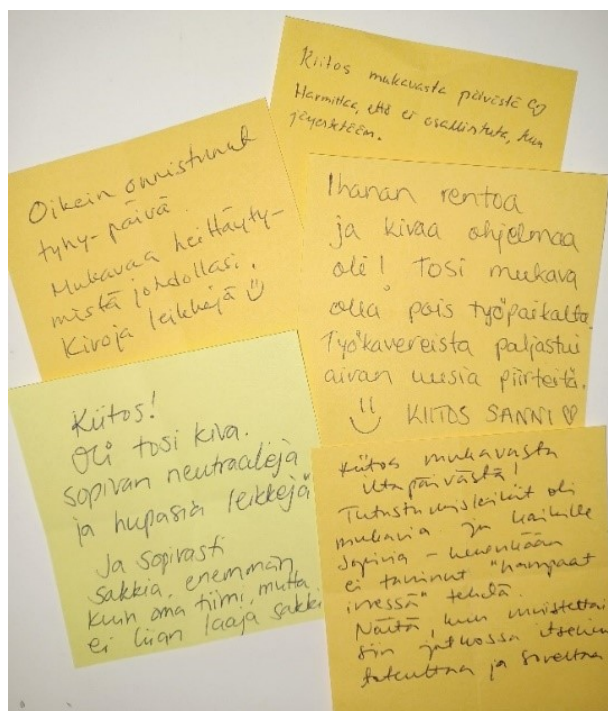 Kiitos mukavasta päivästä
Harmittaa, että ei osallistuta, kun
Oikein onnistunut
tyhy-päivä.
Mukavaa heittäyty-
mistä johdollasi.
Kivoja leikkejä
Ihanan rentoa
ja kivaa ohjelmaa
oli! Tosi mukava
olla pois työpaikalta.
Työkavereista paljastui
aivan uusia piirteitä.
KIITOS SANNI ♡
Kiitos!
Oli tosi kiva.
Sopivan neutraaleja
ja hupasia leikkejä
Ja sopivasti
sakkia, enemmän
kuin oma tiimi, mutta
ei liian laaja sakki
Kiitos mukavasta
iltapäivästä!
Tutustumisleikit oli
mukavia ja kaikille
sopivia – kenenkään
ei tarvinnut "hampaat
irvessä" tehdä.
Näitä, kun muistettai
siin jatkossa itsekin
toteuttaa ja soveltaa